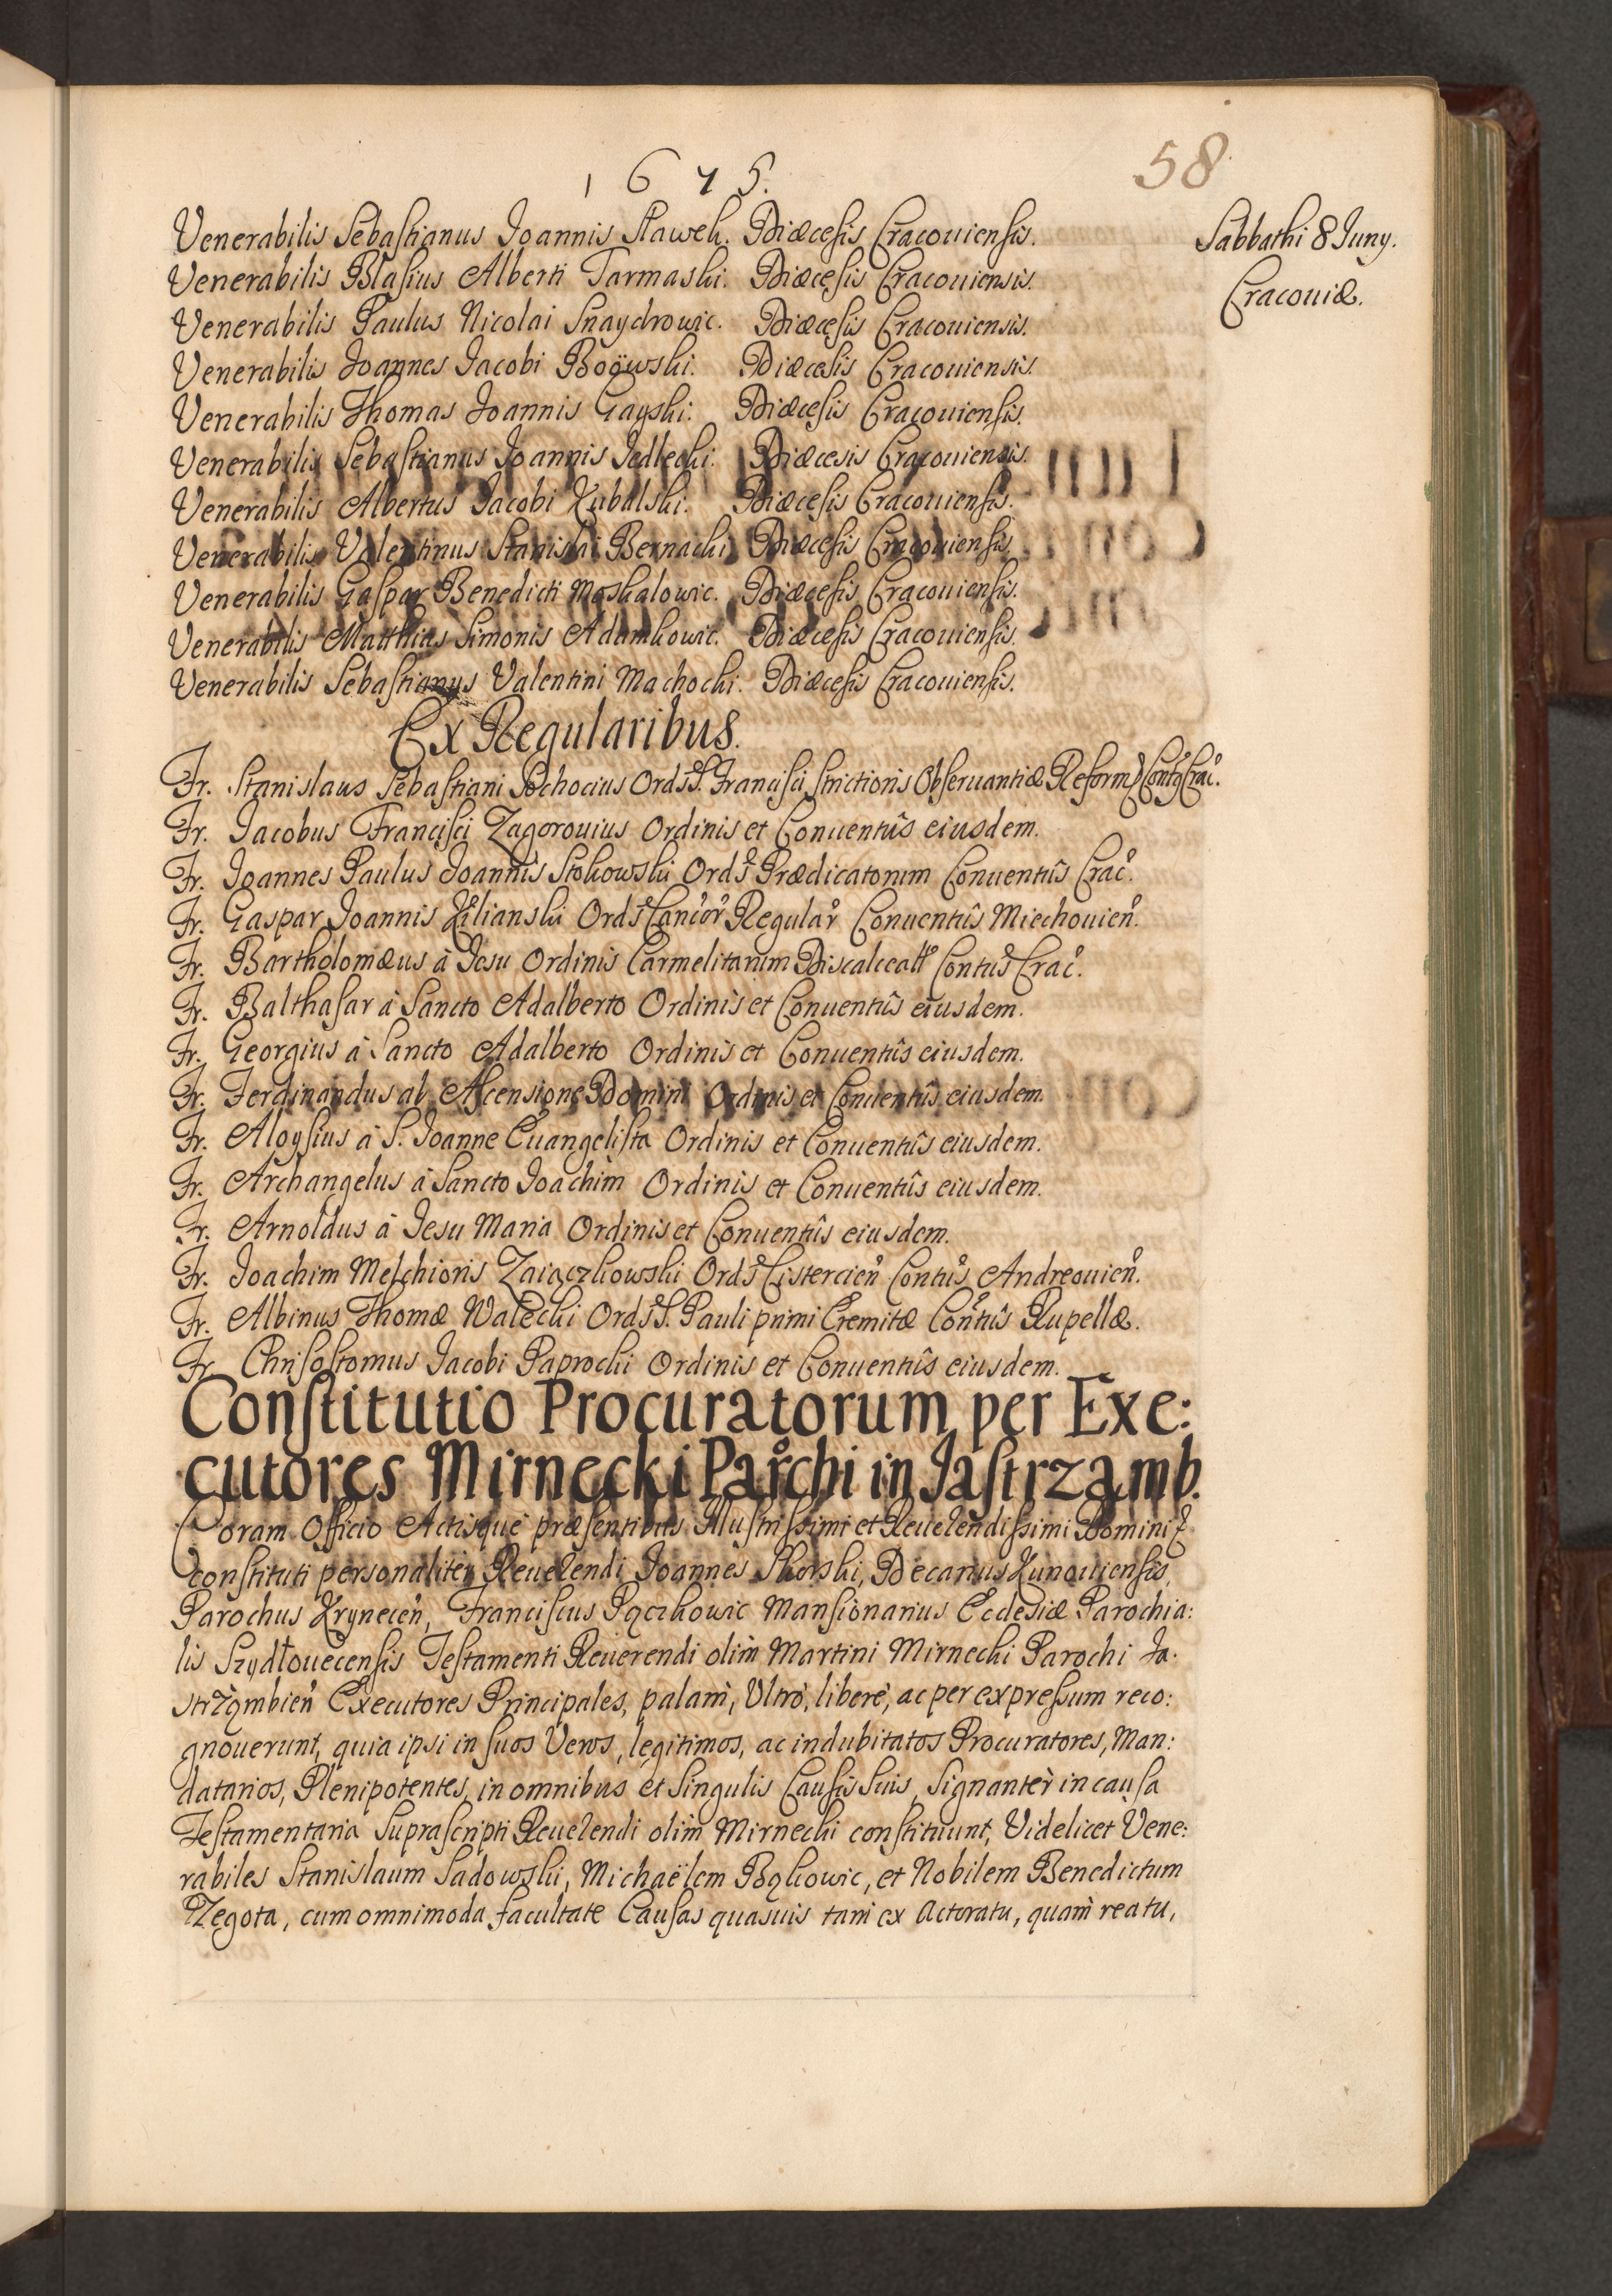 1675.
58
Sabbathi 8 Iuny.
Cracouiæ.
Venerabilis Sebastianus Joannis Stawek. Diæcesis Cracouiensis.
Venerabilis Blasius Alberti Tarmaski. Diæcesis Cracouiensis.
Venerabilis Paulus Nicolai Snaydrowic. Diæcesis Cracouiensis.
Venerabilis Joannes Jacobi Diæcesis Cracouiensis.
Venerabilis Thomas Joannis Gayski. Diæcesis Cracouiensis.
Venerabilis Sebastianus Joannis Jedlecki. Diæcesis Cracouiensis.
Venerabilis Albertus Jacobi Kubalski. Diæcesis Cracouiensis.
Venerabilis Valentinus Stanislai Bernacki. Diæcesis Cracouiensis.
Venerabilis Gaspar Benedicti Moskalowic. Diæcesis Cracouiensis.
Venerabilis Matthias Simonis Adamkowic. Diæcesis Cracouiensis.
Venerabilis Sebastianus Valentini Machocki. Diæcesis Cracouiensis.
Ex Regularibus.
Fr. Stanislaus Sebastiani Sochocius Ords S. Francisci strictioris Obseruantiæ Reform
Fr. Jacobus Francisci Zagorouius Ordinis et Conuentûs eiusdem.
Fr. Joannes Paulus Joannis Stokowski Ords Prædicatorum Conuentûs Crac.
Fr. Gaspar Joannis Kilianski Ords Regular Conuentûs Miechouien.
Fr. Bartholomæus à Jesu Ordinis Carmelitarum Discalceat Contus Crac.
Fr. Balthasar à Sancto Adalberto Ordinis et Conuentûs eiusdem.
Fr. Georgius à Sancto Adalberto Ordinis et Conuentûs eiusdem.
Fr. Ferdinandus ab Ascensione Domini Ordinis et Conuentûs eiusdem.
Fr. Aloysius à S. Joanne Euangelista Ordinis et Conuentûs eiusdem.
Fr. Archangelus à Sancto Joachim Ordinis et Conuentûs eiusdem.
Fr. Arnoldus à Jesu Maria Ordinis et Conuentûs eiusdem.
Fr. Joachim Melchioris Zaiączkowski Ords Cistercien Contus Andreouien.
Fr. Albinus Thomæ Walecki Ords S. Pauli primi Eremitæ Contûs Rupellæ.
Fr. Chrisostomus Jacobi Paprocki Ordinis et Conuentûs eiusdem.
Constitutio Procuratorum per Exe:
cutores Mirnecki Parchi in Jastrzamb.
Coram Officio Actisque præsentibus Illustrissimi et Reuerendissimi Domini
constituti personalitèr Reuerendi Joannes Skorski, Decanus Kunouiensis,
Parochus Krynecen, Franciscus Pączkowic Mansionarius Ecclesiæ Parochia:
lis Szydłouecensis Testamenti Reuerendi olim Martini Mirnecki Parochi Ja:
strząmbien Executores Principales, palam, Vltrò, liberè, ac per expressum reco:
gnouerunt, quia ipsi in suos Veros, legitimos, ac indubitatos Procuratores, Man:
datarios, Plenipotentes, in omnibus et singulis Causis suis, signantèr in causa
Testamentaria Suprascripti Reuerendi olim Mirnecki constituunt, Videlicet Vene:
rabiles Stanislaum Sadowski, Michaëlem Bąkowic, et Nobilem Benedictum
Zegota, cum omnimoda facultate Causas quasuis tam ex Actoratu, quàm reatu,